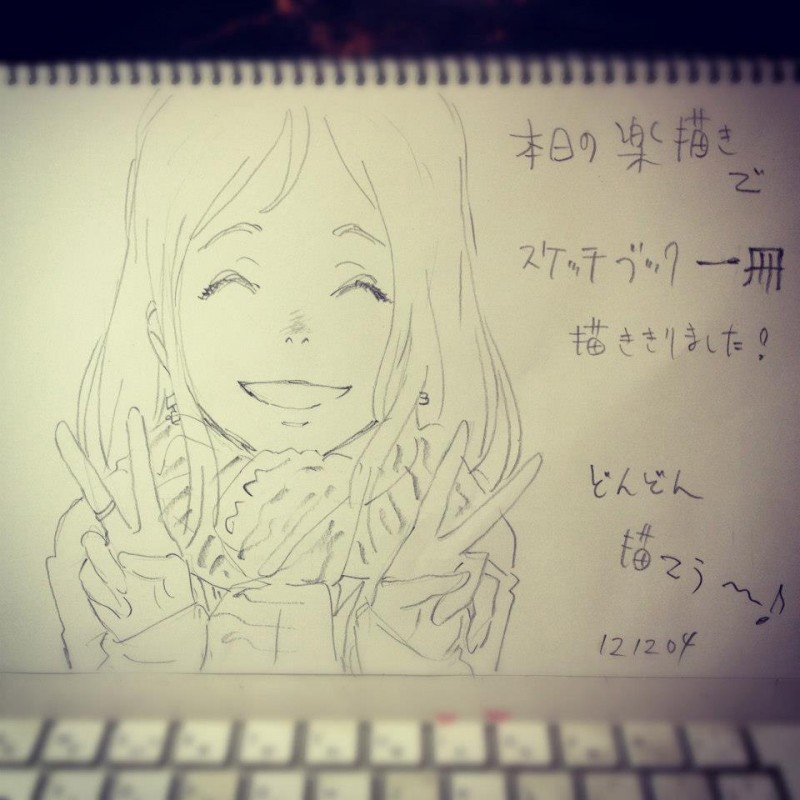 本日の楽描き
で
スケッチブック一冊
描ききりました!
どんどん
描こう〜♪
121204